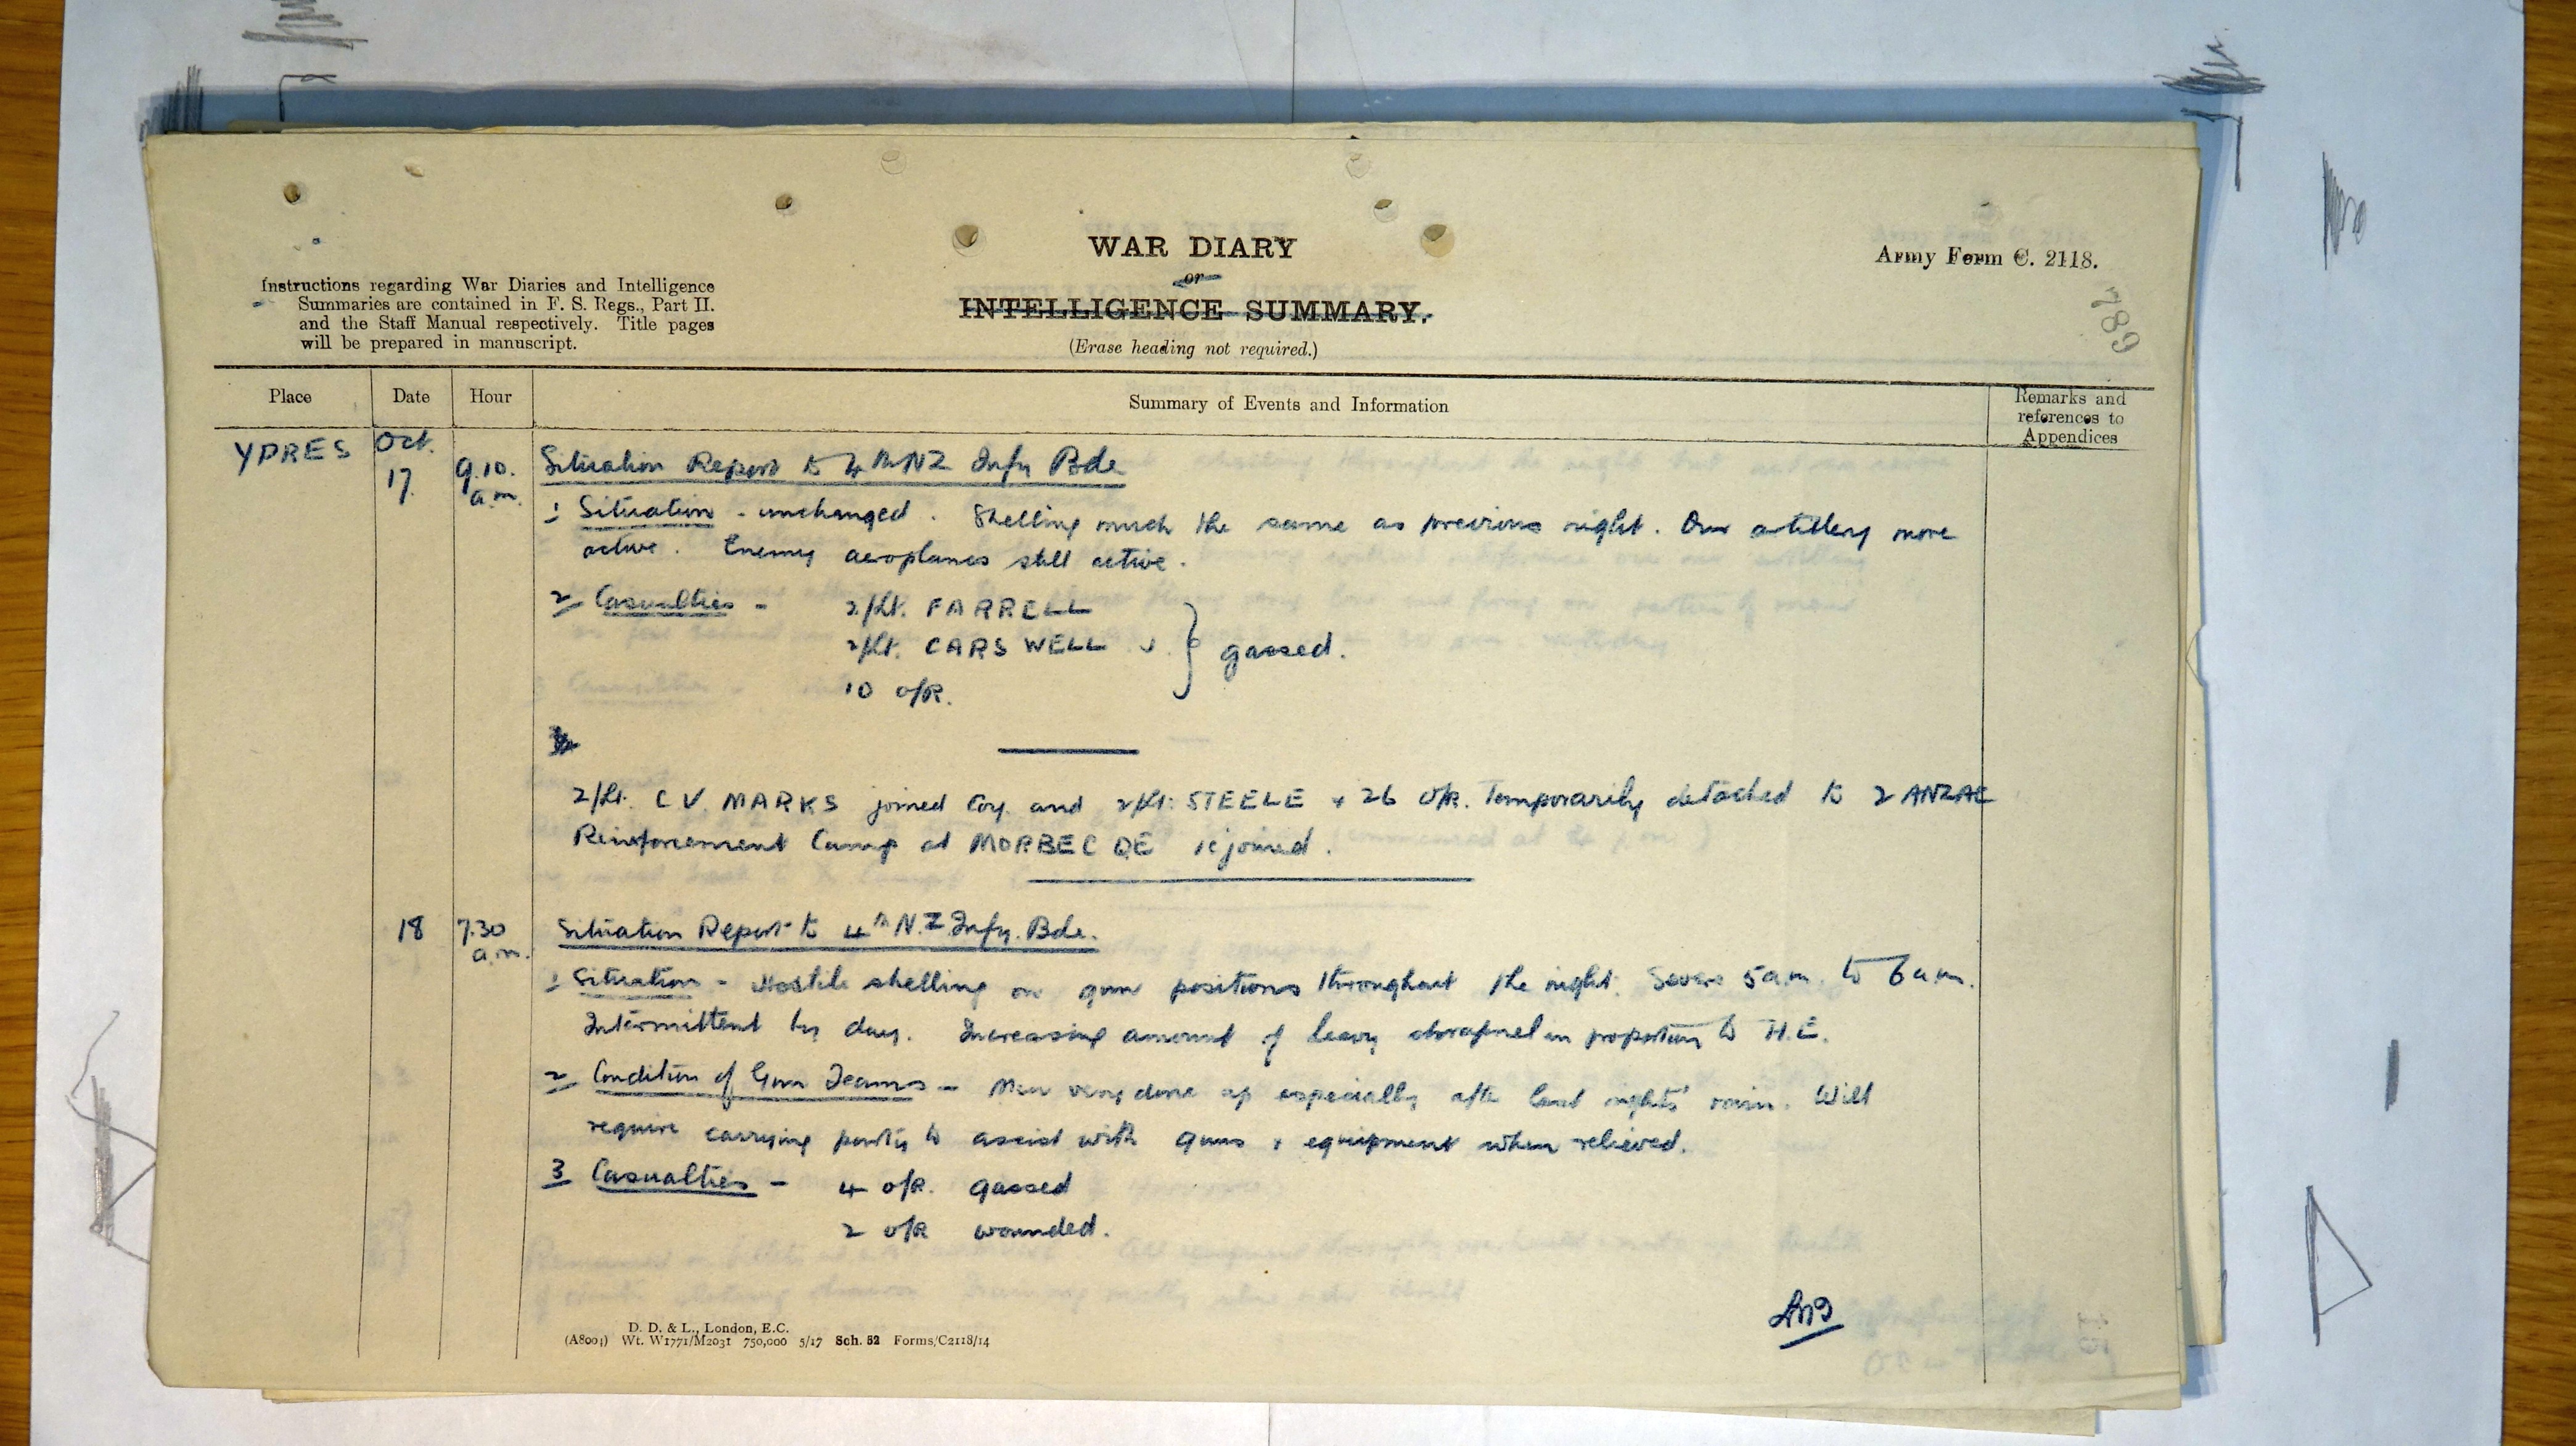 WAR DIARY
or
INTELLIGENCE SUMMARY.
(Erase heading not required.)
Army Form C. 2118.
789
Instructions regarding War Diaries and Intelligence
Summaries are contained in F. S. Regs., Part II.
and the Staff Manual respectively. Title pages
will be prepared in manuscript.
Place Date Hour Summary of Events and Information Remarks and
references to
Appendices
YPRES Oct. 17. 9.10. a.m. Situation Report to 4th NZ Infy Bde
1 Situation - unchanged. Shelling much the same as previous night. Our artillery more
active. Enemy aeroplanes still active.
2 Casualties - 2/Lt. FARRELL
2/Lt. CARSWELL } gassed.
10 O/R.
2/Lt. C V. MARKS joined Coy. and 2/Lt. STEELE + 26 O/R. Temporarily detached to 2 ANZAC
Reinforcement Camp at MORBECQE rejoined.
18 7.30 a.m. Situation Report to 4th N.Z. Infy. Bde.
1 Situation - Hostile shelling on gun positions throughout the night. Severe 5 a.m. to 6 a.m.
Intermittent by day. Increasing amount of heavy shrapnel in proportion to H.E.
2 Condition of Gun Teams - Men very done up especially after last nights' rain. Will
require carrying party to assist with guns + equipment when relieved.
3 Casualties - 4 O/R. gassed
2 O/R wounded.
D. D. & L., London, E.C.
(A8004) Wt. W1771/M2031 750,000 5/17 Sch. 52 Forms/C2118/14